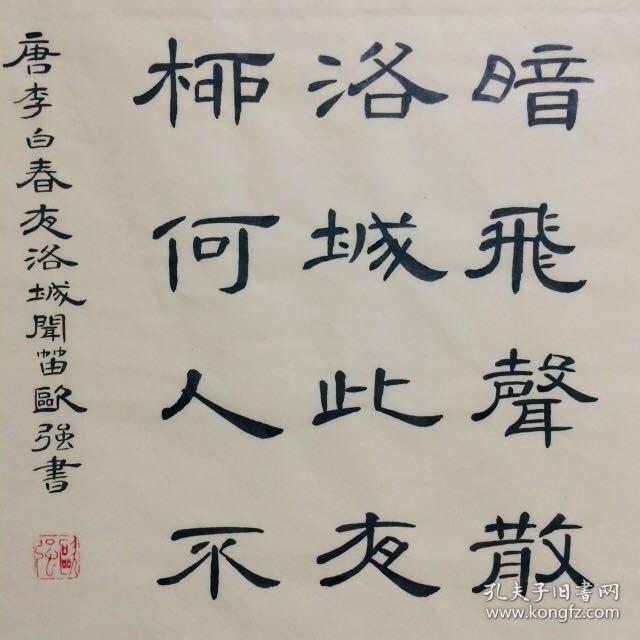 暗飛聲散
洛城此夜
柳何人不
唐李白春夜洛城聞笛歐强書
歐强
孔夫子旧书网
www.kongfz.com